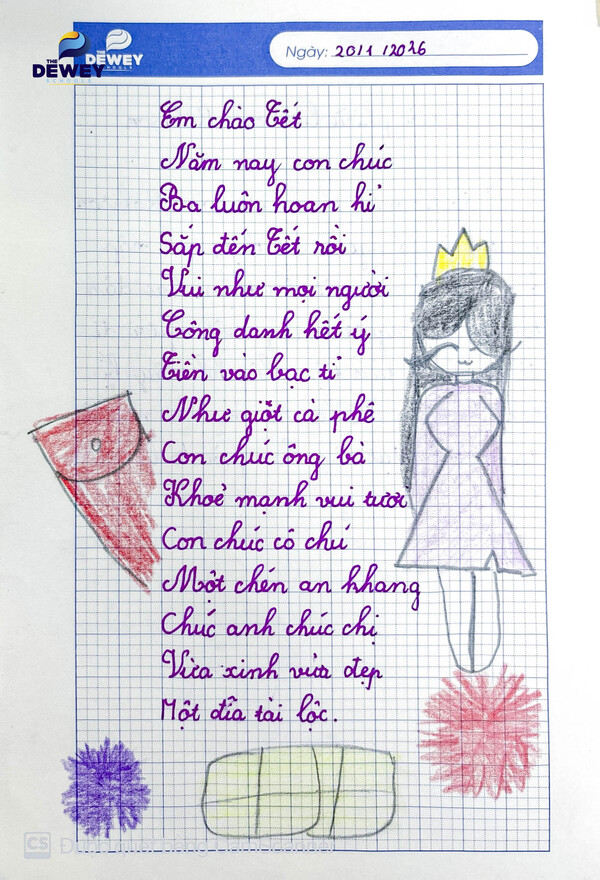 THE DEWEY SCHOOLS
THE DEWEY
Ngày: 20/1/2026
Em chào Tết
Năm nay con chúc
Ba luôn hoan hỉ
Sắp đến Tết rồi
Vui như mọi người
Công danh hết ý
Tiền vào bạc tỉ
Như giọt cà phê
Con chúc ông bà
Khoẻ mạnh vui tươi
Con chúc cô chú
Một chén an khang
Chúc anh chúc chị
Vừa xinh vừa đẹp
Một đĩa tài lộc.
CS Được quét bằng CamScanner